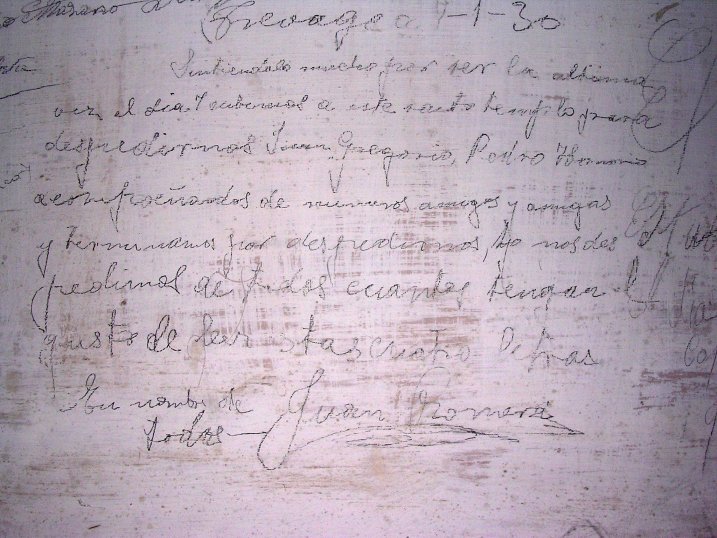 a 7-1-30
Sintiendolo mucho por ser la ultima
vez el dia 7 subimos a este santo templo para
despedirnos Juan, Gregorio, Pedro
acompañados de numeros amigos y amigas
y terminamos por despedirnos, y nos des
pedimos de todos cuantos tengan el
gusto de leer stas cuatro letras
En nombre de Juan Romera
todos